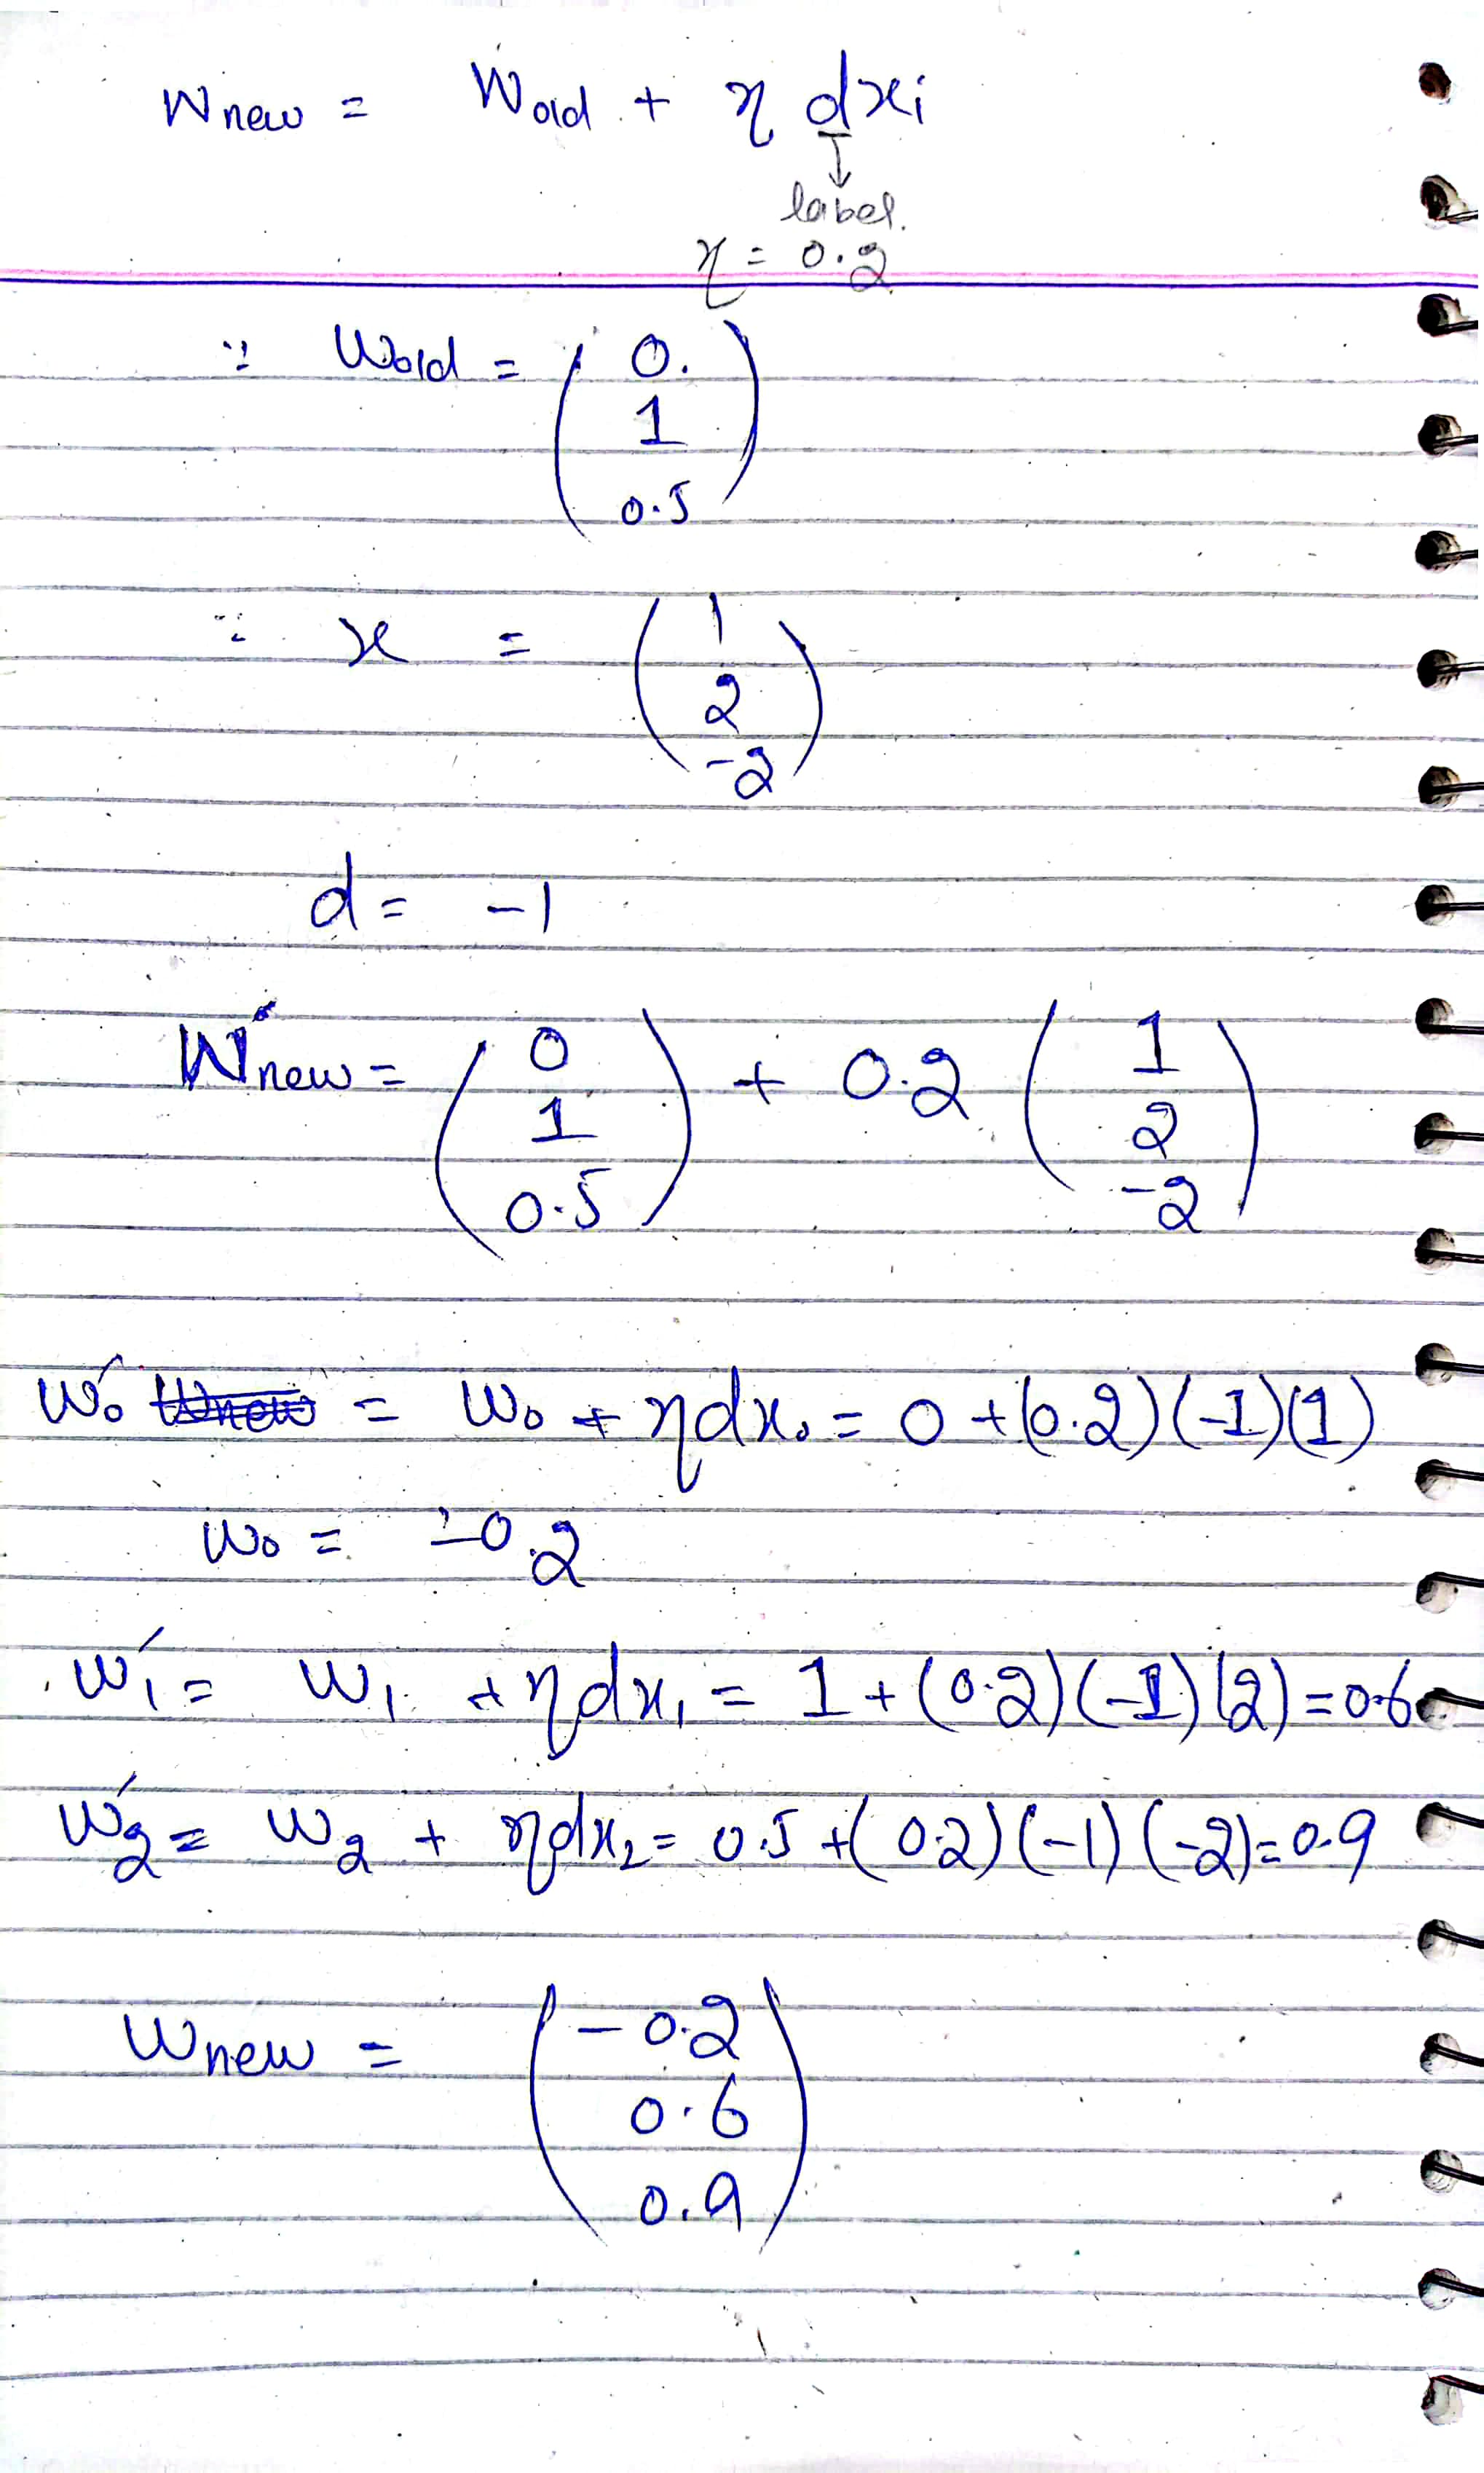 Wnew = Wold + η dxi
↓
label.
η = 0.2
∵ Wold = ( 0.
1
0.5 )
∵ x = ( 1
2
-2 )
d = -1
W'new = ( 0 1 0.5 ) + 0.2 ( 1 2 -2 )
w'₀ = w₀ + ηdx₀ = 0 + (0.2)(-1)(1)
w₀ = -0.2
w'₁ = w₁ + ηdx₁ = 1 + (0.2)(-1)(2) = 0.6
w'₂ = w₂ + ηdx₂ = 0.5 + (0.2)(-1)(-2) = 0.9
Wnew = ( -0.2
0.6
0.9 )